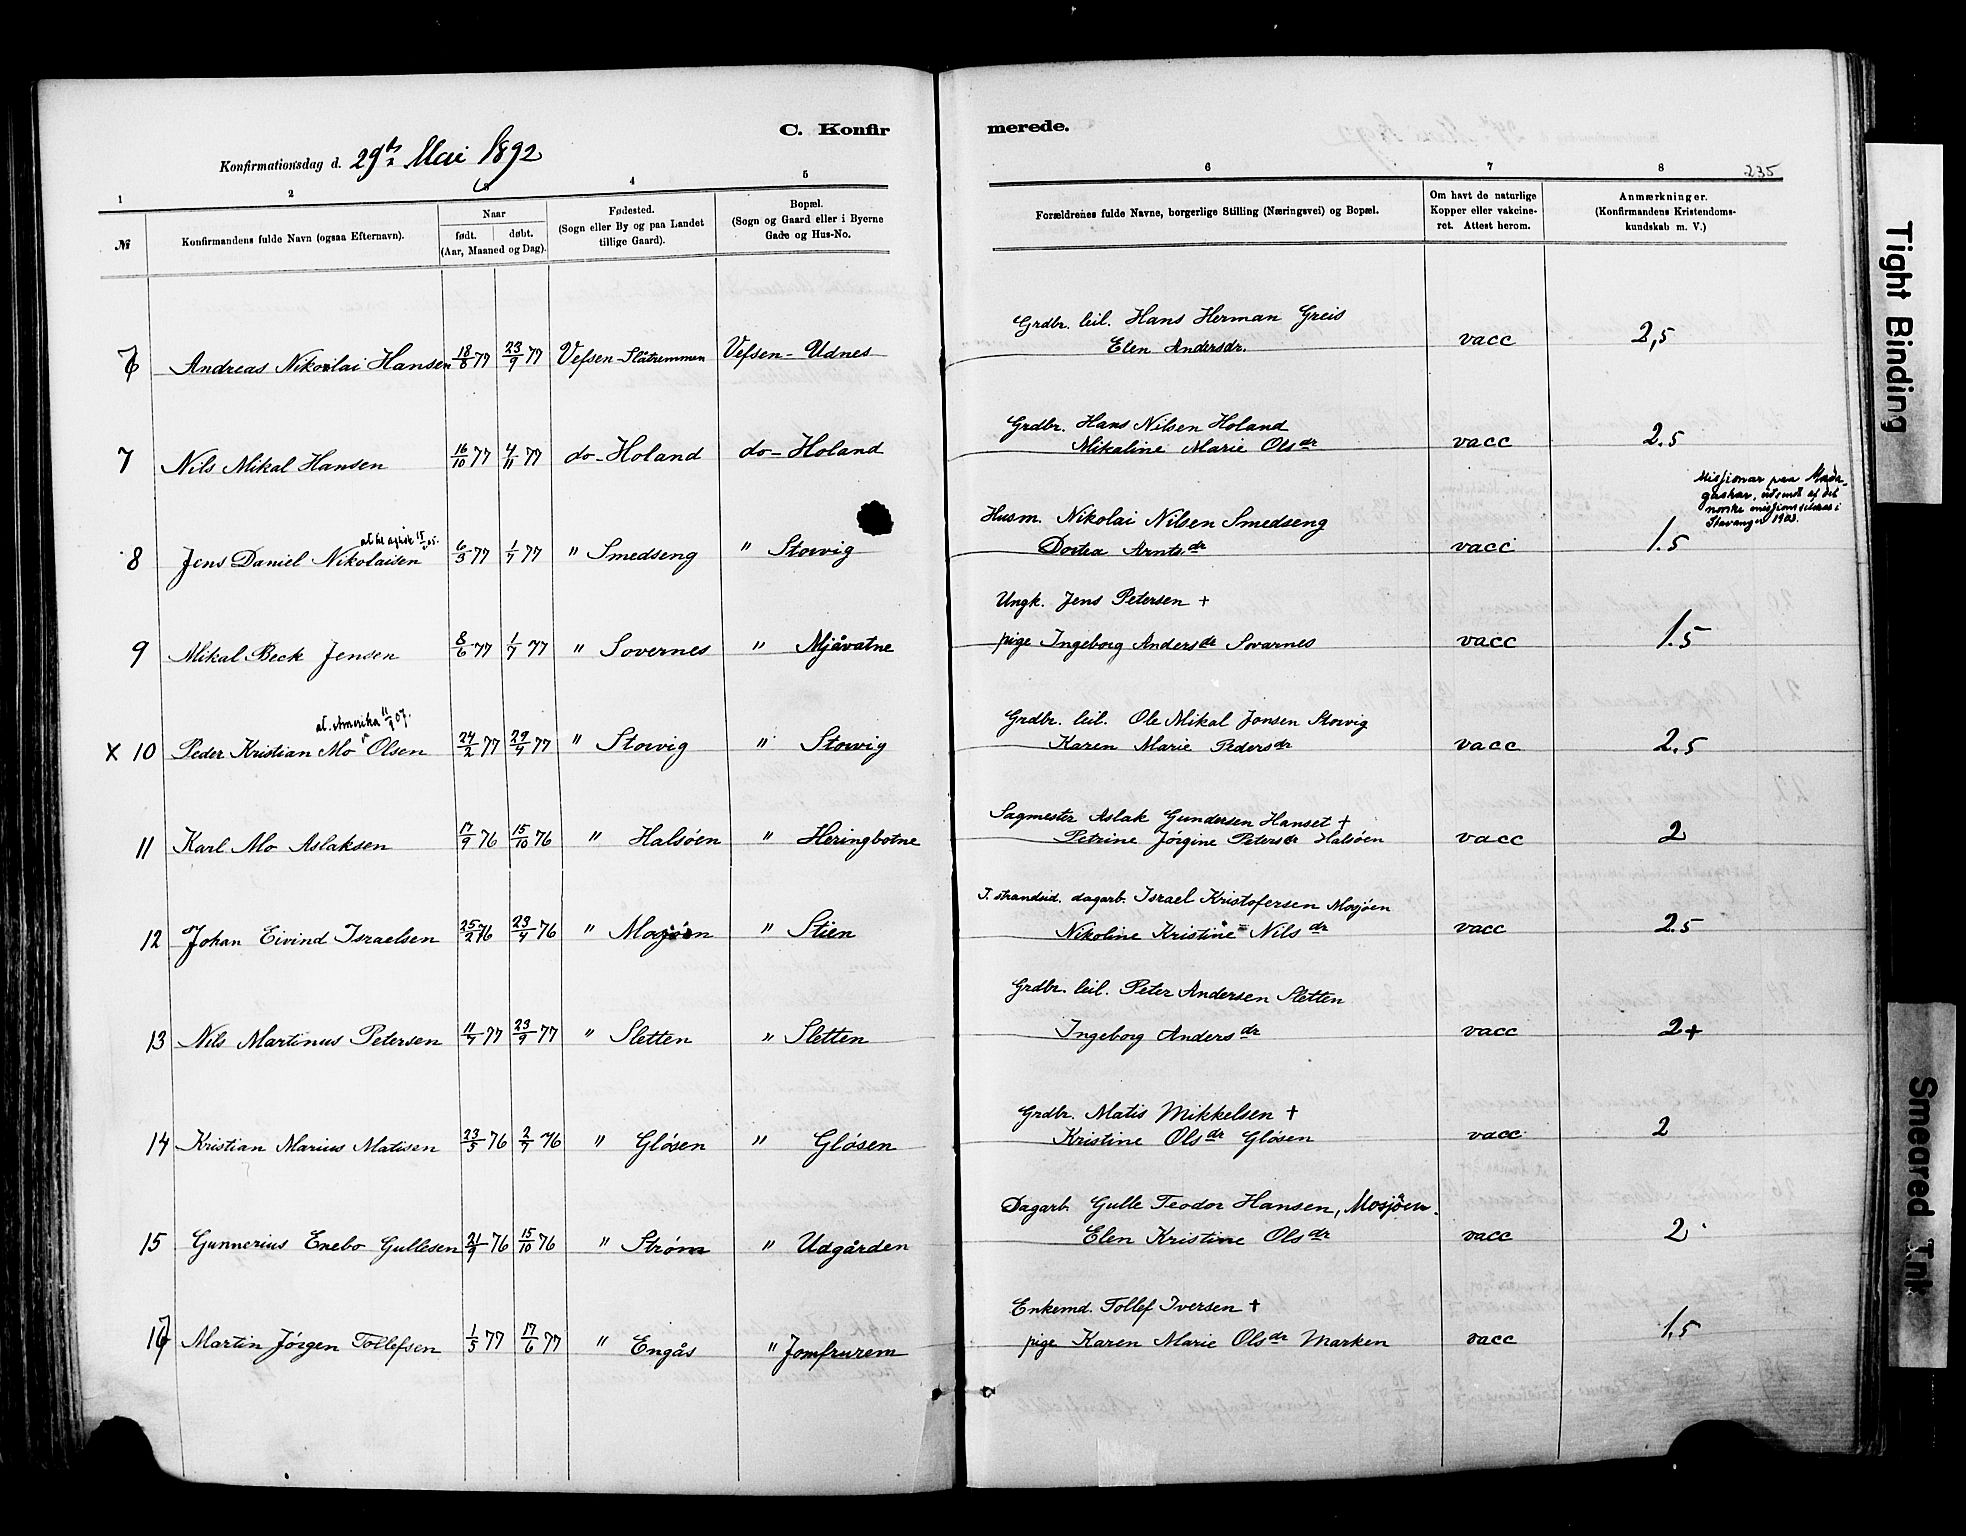 C. Konfirmerede.
Konfirmationsdag d. 29de Mai 1892
235
1 2 3 4 5 6 7 8
№
Konfirmandens fulde Navn (ogsaa Efternavn).
Naar
født. døbt.
(Aar, Maaned og Dag).
Fødested.
(Sogn eller By og paa Landet
tillige Gaard).
Bopæl.
(Sogn og Gaard eller i Byerne
Gade og Hus-No.
Forældrenes fulde Navne, borgerlige Stilling (Næringsvei) og Bopæl.
Om havt de naturlige
Kopper eller vakcine-
ret. Attest herom.
Anmærkninger.
(Konfirmandens Kristendoms-
kundskab m. V.)
Grdbr. leil. Hans Herman Greis
6 Andreas Nikolai Hansen 18/8 77 23/9 77 Vefsen - Slåtremmen Vefsen - Udnes Elen Andersdr. vacc 2,5
Grdbr. Hans Nilsen Holand
7 Nils Mikal Hansen 16/10 77 4/11 77 do - Holand do - Holand Mikaline Marie Olsdr vacc 2.5
Missjonær paa Mada-
gaskar, udsendt af det
norske missionsselskab i
Stavanger 1903.
Husm. Nikolai Nilsen Smedseng
8 Jens Daniel Nikolaisen 6/3 77 1/7 77 " Smedseng " Storvig Dortea Arntsdr vacc 1.5
Ungk. Jens Petersen +
9 Mikal Beck Jensen 8/6 77 1/7 77 " Sovernes " Mjåvatne pige Ingeborg Andersdr Sovarnes vacc 1.5
at. Amerika 11/4 07.
Grdbr. leil. Ole Mikal Jonsen Storvig
x 10 Peder Kristian Mo Olsen 24/2 77 29/4 77 " Storvig " Storvig Karen Marie Pedersdr vacc 2.5
Sagmester Aslak Gundersen Hanset +
11 Karl Mo Aslaksen 17/9 76 15/10 76 " Halsøen " Heringbotne Petrine Jørgine Petersdr Halsøen vacc 2
I. strandsid. dagarb. Israel Kristofersen Mosjøen
12 Johan Eivind Israelsen 25/2 76 23/4 76 " Mosjøen " Stien Nikoline Kristine Nilsdr vacc 2.5
Grdbr. leil. Peter Andersen Sletten
13 Nils Martinus Petersen 11/7 77 23/9 77 " Sletten " Sletten Ingeborg Andersdr vacc 2+
Grdbr. Matis Mikkelsen +
14 Kristian Marius Matisen 23/5 76 2/7 76 " Gløsen " Gløsen Kristine Olsdr Gløsen vacc 2
Dagarb. Gulle Teodor Hansen, Mosjøen.
15 Gunnerius Enebo Gullesen 21/9 76 15/10 76 " Strøm " Udgården Elen Kristine Olsdr vacc 2
Enkemd. Tollef Iversen +
16 Martin Jørgen Tollefsen 1/5 77 17/6 77 " Engås " Jomfrurem pige Karen Marie Olsdr Marken vacc 1,5
Tight Binding
Smeared Ink